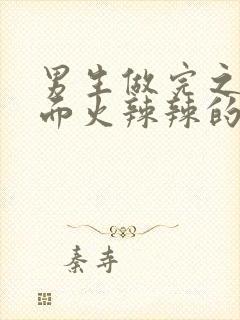 男生做完之
而火辣辣的
秦寺